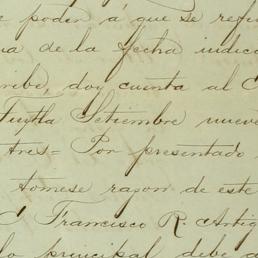 e poder á que se refi
na de la fecha indic
ribe, doy cuenta al C
Tuxtla Setiembre nueve
tres= Por presentado
tómese razon de este
C Francisco R. Artig
lo principal debe a